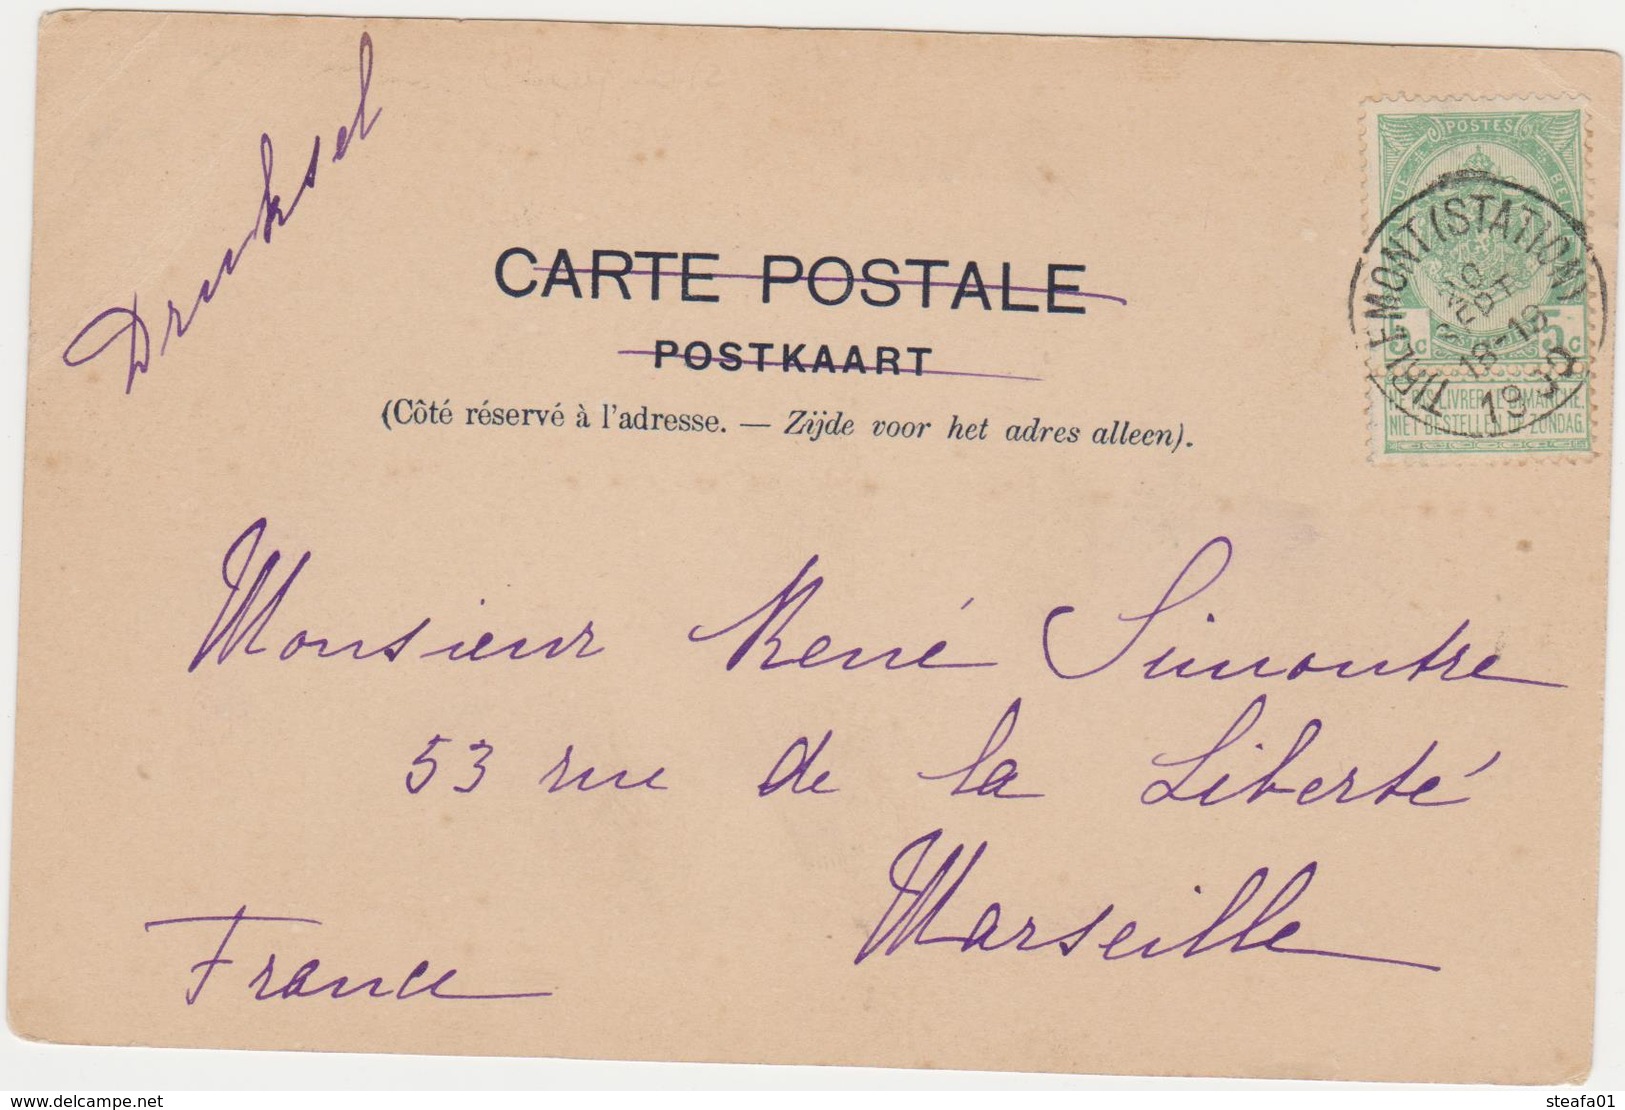 Druksel
CARTE POSTALE
POSTKAART
(Côté réservé à l'adresse. — Zijde voor het adres alleen).
POSTES
5c 5c
NIET BESTELLEN OP ZONDAG
TIRLEMONT (STATION)
SEPT
18-19
Monsieur René Simontre
53 rue de la Liberté
Marseille
France
delcampe.net
steafa01